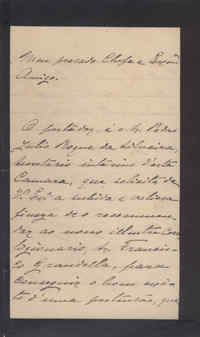 Meu prezado Chefe e Exmo
Amigo.
O portador, é o Sr. Pedro
Julio Roque da Silveira,
interino d'esta
Camara, que solicita de
V. Exa a subida e valiosa
fineza de o recommen-
dar ao nosso illustre cor
religionario, Sr. Francis-
co Grandella, para
conseguir o bom exi-
to d'uma pretensão, que